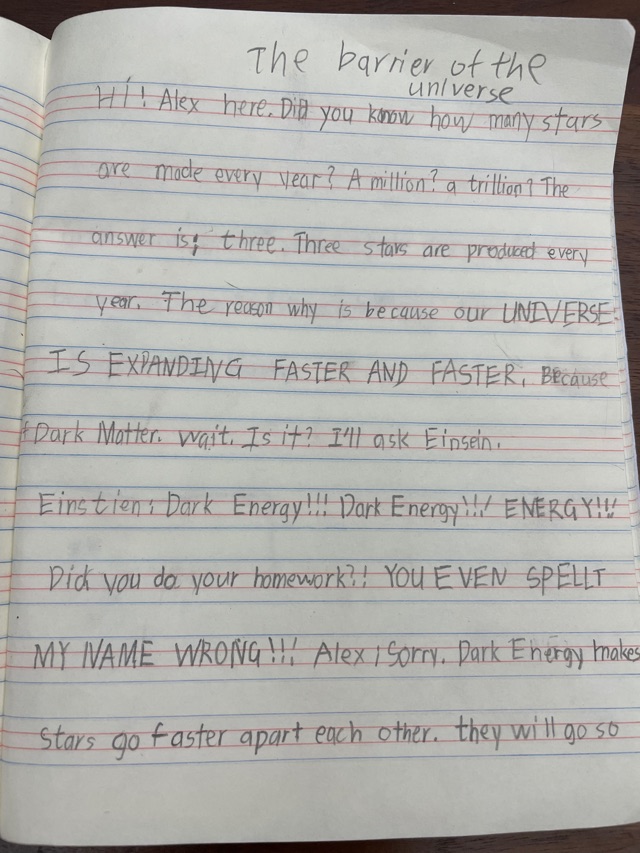 The barrier of the
universe
Hi! Alex here. Did you know how many stars
are made every year? A million? a trillion? The
answer is; three. Three stars are produced every
year. The reason why is because our UNIVERSE
IS EXPANDING FASTER AND FASTER. Because
Dark Matter. wait. Is it? I'll ask Einsein.
Einstien: Dark Energy!!! Dark Energy!!! ENERGY!!!
Did you do your homework?! YOU EVEN SPELLT
MY NAME WRONG!!! Alex: Sorry. Dark Energy makes
stars go faster apart each other. they will go so